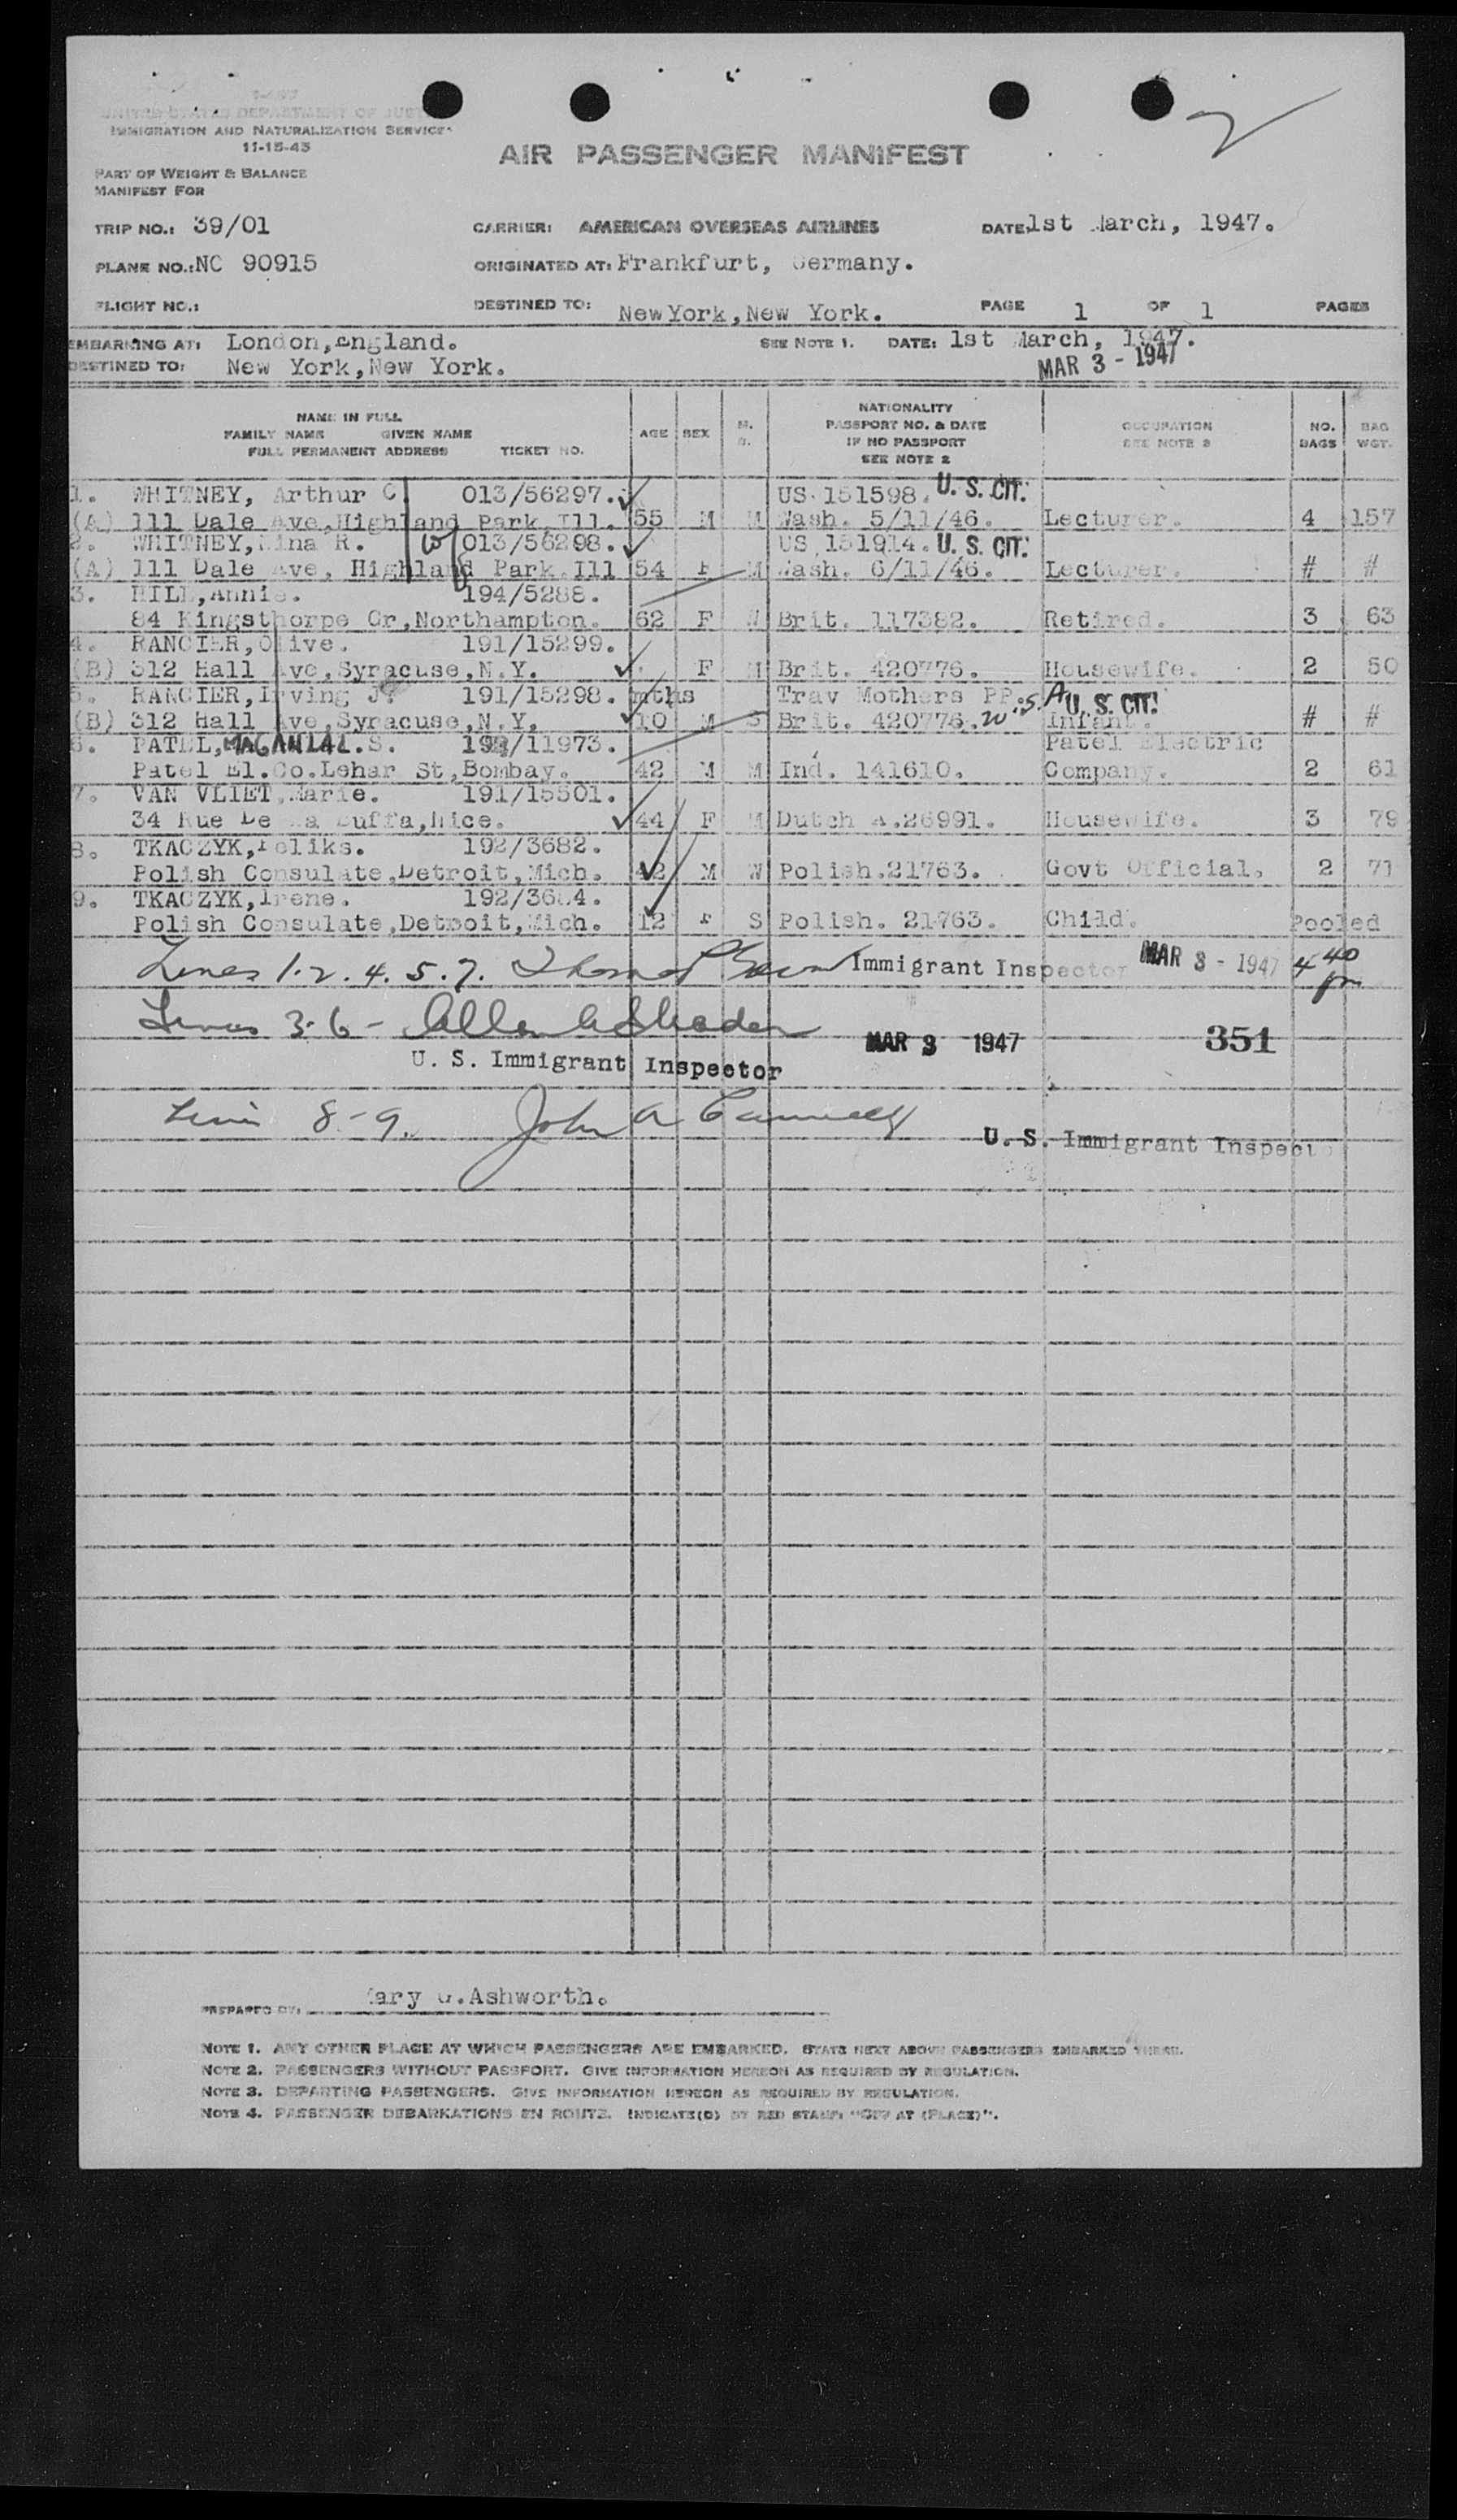 UNITED STATES DEPARTMENT OF JUSTICE
IMMIGRATION AND NATURALIZATION SERVICE
11-15-43
AIR PASSENGER MANIFEST
PART OF WEIGHT & BALANCE
MANIFEST FOR
TRIP NO.: 39/01 CARRIER: AMERICAN OVERSEAS AIRLINES DATE: 1st March, 1947.
PLANE NO.: NC 90915 ORIGINATED AT: Frankfurt, Germany.
FLIGHT NO.: DESTINED TO: New York, New York. PAGE 1 OF 1 PAGES
EMBARKING AT: London, England. SEE NOTE 1. DATE: 1st March, 1947.
DESTINED TO: New York, New York. MAR 3 - 1947
NAME IN FULL
FAMILY NAME GIVEN NAME
FULL PERMANENT ADDRESS TICKET NO. AGE SEX M. S. NATIONALITY PASSPORT NO. & DATE IF NO PASSPORT SEE NOTE 2 OCCUPATION SEE NOTE 3 NO. BAGS BAG WGT.
1. WHITNEY, Arthur C 013/56297. US 151598. U. S. CIT.
(A) 111 Dale Ave, Highland Park, Ill. 55 M M Wash. 5/11/46. Lecturer. 4 157
2. WHITNEY, R. 013/56298. US 151914. U. S. CIT.
(A) 111 Dale Ave, Highland Park. Ill 54 F M Wash. 6/11/46. Lecturer. # #
3. HILL, Annie. 194/5288.
84 Kingsthorpe Gr, Northampton. 62 F W Brit. 117382. Retired. 3 63
4. RANCIER, Olive. 191/15299.
(B) 312 Hall Ave, Syracuse, N.Y. F M Brit. 420776. Housewife. 2 50
5. RANCIER, Irving J. 191/15298. mths Trav Mothers PP. U.S.A. U. S. CIT.
(B) 312 Hall Ave, Syracuse, N.Y. 10 M S Brit. 420776. Infant. # #
6. PATEL, MAGANLAL. S. 193/11973. Patel Electric
Patel El. Co. Lehar St, Bombay. 42 M M Ind. 141610. Company. 2 61
7. VAN VLIET, Marie. 191/15501.
34 Rue De La Buffa, Nice. 44 F M Dutch A.26991. Housewife. 3 79
8. TKACZYK, Feliks. 192/3682.
Polish Consulate, Detroit, Mich. 42 M W Polish. 21763. Govt Official. 2 71
9. TKACZYK, Irene. 192/3684.
Polish Consulate, Detroit, Mich. 12 F S Polish. 21763. Child. Pooled
Lines 1. 2. 4. 5. 7. Immigrant Inspector MAR 3 - 1947 4 40 pm
Lines 3-6 - MAR 3 1947 351
U. S. Immigrant Inspector
Lines 8-9. John A U. S. Immigrant Inspector
PREPARED BY: Mary G. Ashworth.
NOTE 1. ANY OTHER PLACE AT WHICH PASSENGERS ARE EMBARKED. STATE NEXT ABOVE PASSENGERS EMBARKED THERE.
NOTE 2. PASSENGERS WITHOUT PASSPORT. GIVE INFORMATION HEREON AS REQUIRED BY REGULATION.
NOTE 3. DEPARTING PASSENGERS. GIVE INFORMATION HEREON AS REQUIRED BY REGULATION.
NOTE 4. PASSENGER DEBARKATIONS EN ROUTE. INDICATE(D) BY RED STAMP "OFF AT (PLACE)".